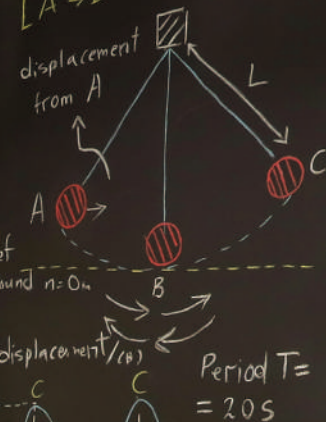 [A
displacement
from A
L
C
A
ef
ound n=0m
B
displacement/(m)
Period T=
= 20s
C
C